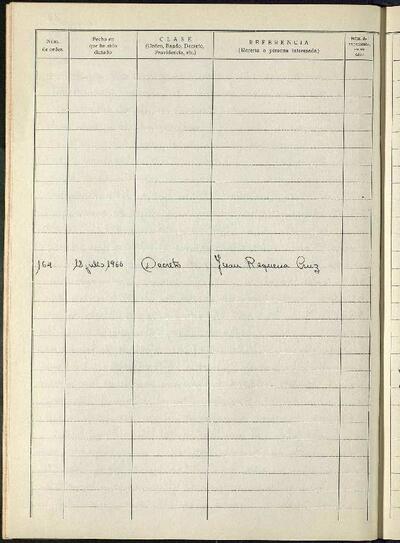 Núm. de orden
Fecha en que ha sido dictado
CLASE
(Orden, Bando, Decreto, Providencia, etc.)
REFERENCIA
(Materia o persona interesada)
164 18 julio 1966 Decreto Juan Requena Cruz